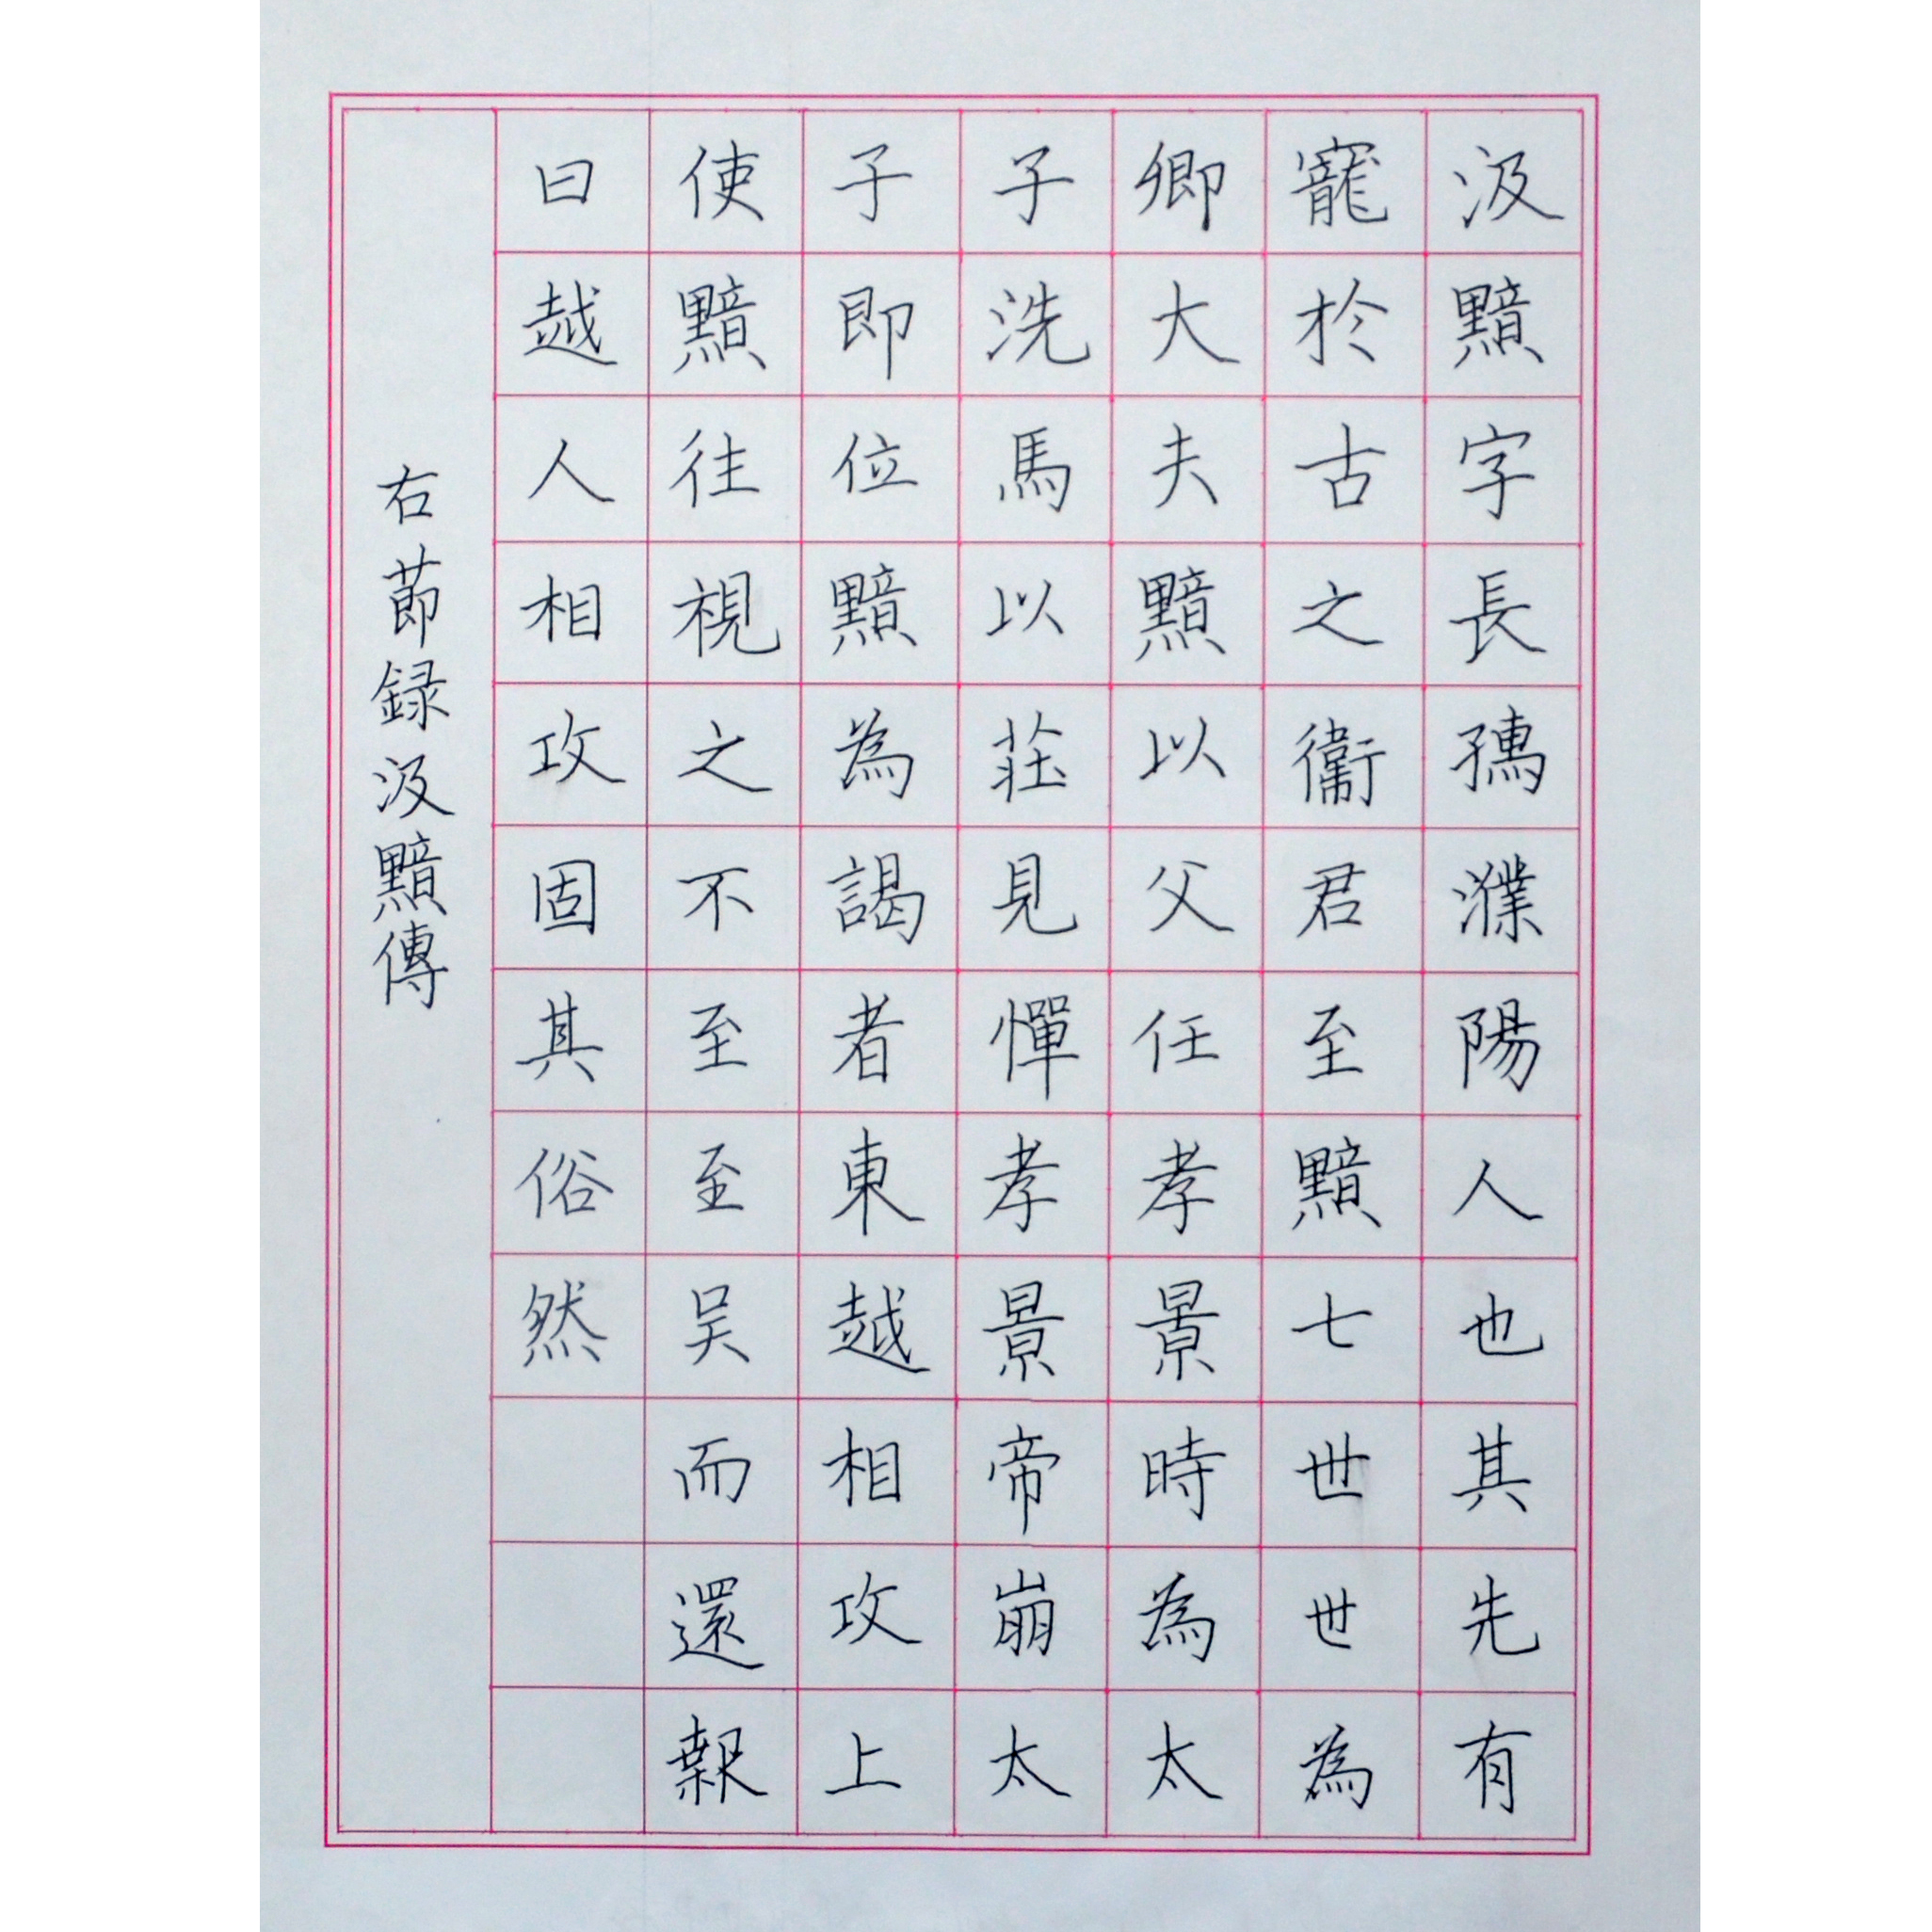 汲黯字長孺濮陽人也其先有
寵於古之衛君至黯七世世為
卿大夫黯以父任孝景時為太
子洗馬以莊見憚孝景帝崩太
子即位黯為謁者東越相攻上
使黯往視之不至至吳而還報
曰越人相攻固其俗然
右節録汲黯傳